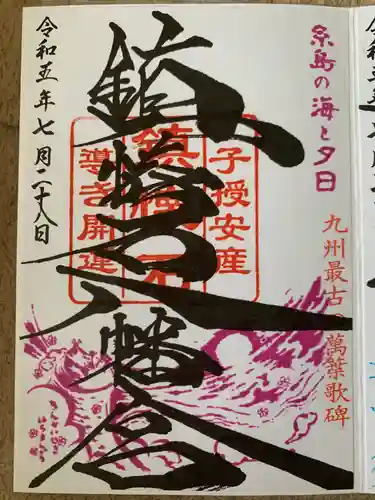 糸島の海と夕日
九州最古の萬葉歌碑
子授安産
鎮懐石
導き開運
鎮懐石八幡宮
令和五年七月二十八日